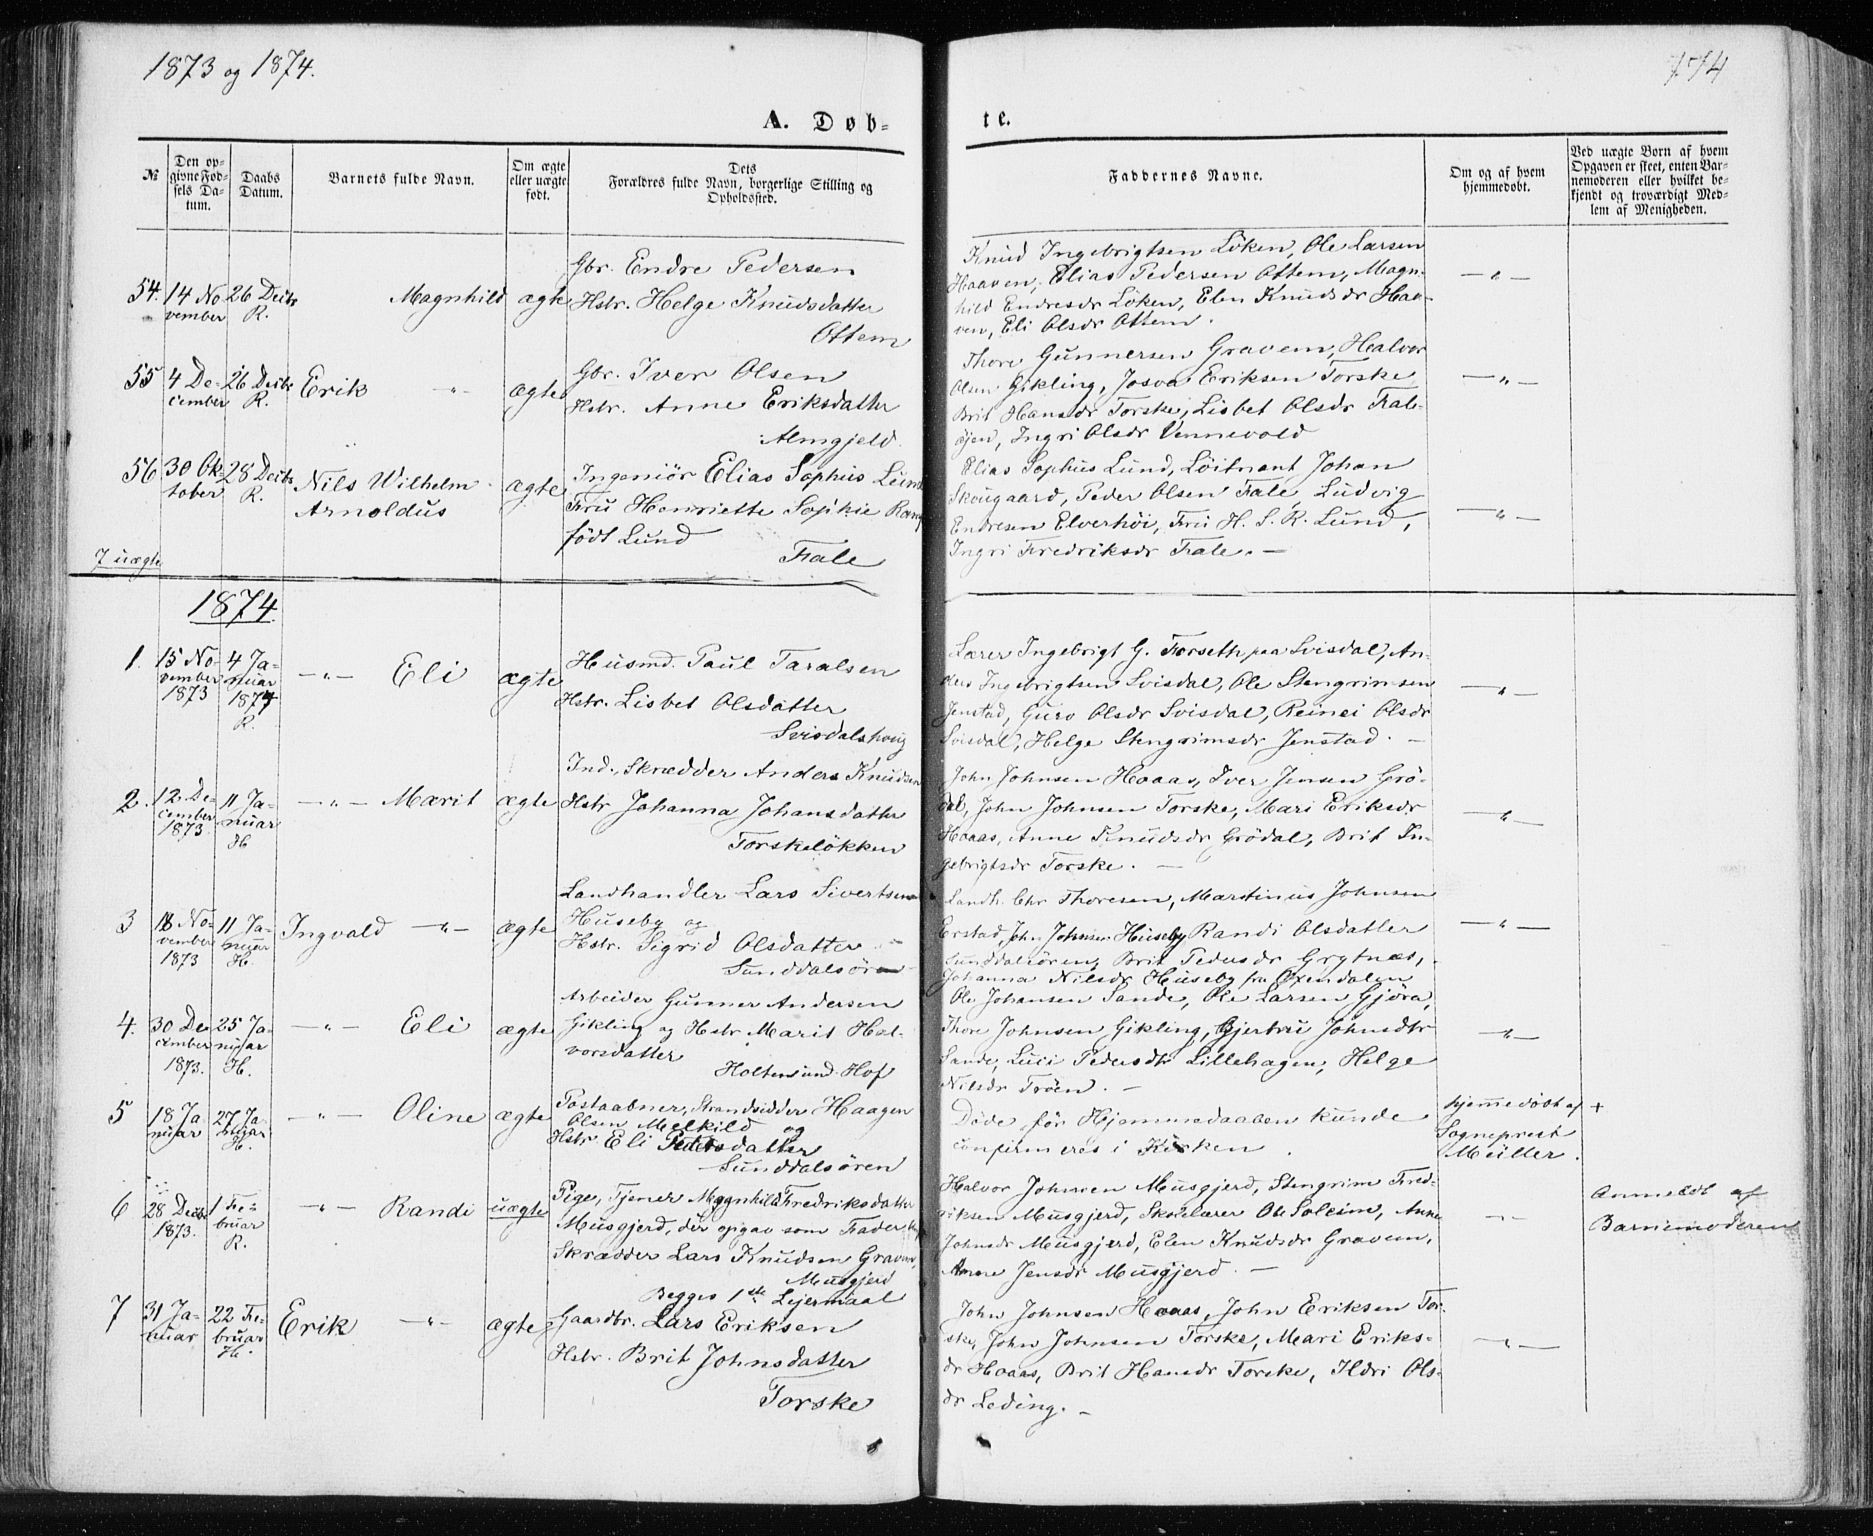 1873 og 1874.
174
A. Døb-
te.
№
Den op-
givne Fød-
sels Da-
tum.
Daabs
Datum.
Barnets fulde Navn.
Om ægte
eller uægte
født.
Dets
Forældres fulde Navn, borgerlige Stilling og
Opholdssted.
Faddernes Navne.
Om og af hvem
hjemmedøbt.
Ved uægte Børn af hvem
Opgaven er skeet, enten Bar-
nemoderen eller hvilket be-
kjendt og troværdigt Med-
lem af Menigheden.
54.
14 No
vember
26 Decbr
R.
Magnhild
ægte
Gbr. Endre Pedersen
Hstr. Helge Knudsdatter
Ottem
Knud Ingebrigtsen Løken, Ole Larsen
Haaven, Elias Pedersen Ottem, Magn-
hild Endresdr Løken, Elen Knudsdr Haa-
ven, Eli Olsdr Ottem.
—"—
55
4 De-
cember
26 Decbr
R.
Erik
"
ægte
Gbr. Iver Olsen
Hstr. Anne Eriksdatter
Almgjeld.
Thore Gunnersen Gravem, Halvor
Olsen Gikling, Josva Eriksen Torske
Brit Hansdr Torske, Lisbet Olsdr Fale-
øjen, Ingri Olsdr Vennevold
—"—
56
30 Ok
tober
28 Decbr
R.
Nils Wilhelm
Arnoldus
ægte
Ingeniör Elias Sophus Lund
Fru Henriette Sophie
født Lund
Fale
Elias Sophus Lund, Löitnant Johan
Skougaard, Peder Olsen Fale, Ludvig
Endresen Elverhöi, Fru H. S. R. Lund,
Ingri Fredriksdr Fale. —
—"—
7 uægte
1874
1.
15 No
vember
1873
4 Ja-
nuar
1874
R.
—"—
Eli
ægte
Husmd. Paul Taralsen
Hstr. Lisbet Olsdatter
Svisdalshoug
Lærer Ingebrigt G. Forseth paa Svisdal, An-
ders Ingebrigtsen Svisdal, Ole Stengrimsen
Jenstad, Guro Olsdr Svisdal, Reinei Olsdr
Svisdal, Helge Stengrimsdr Jenstad. —
—"—
2.
12 De-
cember
1873
11 Ja-
nuar
H
—"—
Marit
ægte
Ind. Skrædder Anders Knudsen
Hstr Johanna Johansdatter
Torskeløkken
John Johnsen Hoaas, Iver Jensen Grö-
dal, John Johnsen Torske, Mari Eriksdr
Hoaas, Anne Knudsdr Grödal, Brit In-
gebrigtsdr Torske. —
—"—
3
18 No-
vember
1873
11 Ja-
nuar
H.
Ingvald
—"—
ægte
Landhandler Lars Sivertsen
Huseby og
Hstr. Sigrid Olsdatter
Sunddalsören
Landh. Chr Thoresen, Martinus Johnsen
Erstad, John Johnsen Huseby Randi Olsdatter
Sunddalsören, Brit Pedersdr Grytnæs,
Johanna Nilsdr Huseby fra Øxendalen
—"—
4.
30 De
cember
1873.
25 Ja-
nuar
H.
—"—
Eli
ægte
Arbeider Gunner Andersen
Gikling og Hstr Marit Hal-
vorsdatter
Holten und. Hof
Ole Johansen Sande, Ole Larsen Gjöra,
Thore Johnsen Gikling, Gjertru Johnsdtr
Sande, Luci Pedersdtr Lillehagen, Helge
Nilsdr Tröen. —
—"—
5
18 Ja-
nuar
27 Ja-
nuar
H.
—"—
Oline
ægte
Postaabner, Strandsidder Haagen
Olsen Melkild og
Hstr Eli Pedersdatter
Sunddalsören
Döde för Hjemmedaaben kunde
confirmeres i Kirken.
hjemmedöbt af
Sogneprest
Müller.
+
6
28 Decbr
1873.
1 Fe-
bruar
R.
—"—
Randi
uægte
Pige, Tjener Magnhild Fredriksdatter
Musgjerd, der opgav som Fader
Skrædder Lars Knudsen Gravem,
Musgjerd
Begges 1ste Lejermaal
Halvor Johnsen Musgjerd, Stengrim Fred-
riksen Musgjerd, Skolelærer Ole Soleim, Anne
Johnsdr Musgjerd, Elen Knudsdr Gravem,
Anne Jensdr Musgjerd. —
—"—
Anmeldt af
Barnemoderen
7
31 Ja-
nuar
22 Fe-
bruar
H.
Erik
—"—
ægte
Gaardbr. Lars Eriksen
Hstr. Brit Johnsdatter
Torske
John Johnsen Hoaas, John Eriksen Tor-
ske, John Johnsen Torske, Mari Eriks-
dr Hoaas, Brit Hansdr Torske, Ildri Ols-
dr Leding. —
—"—